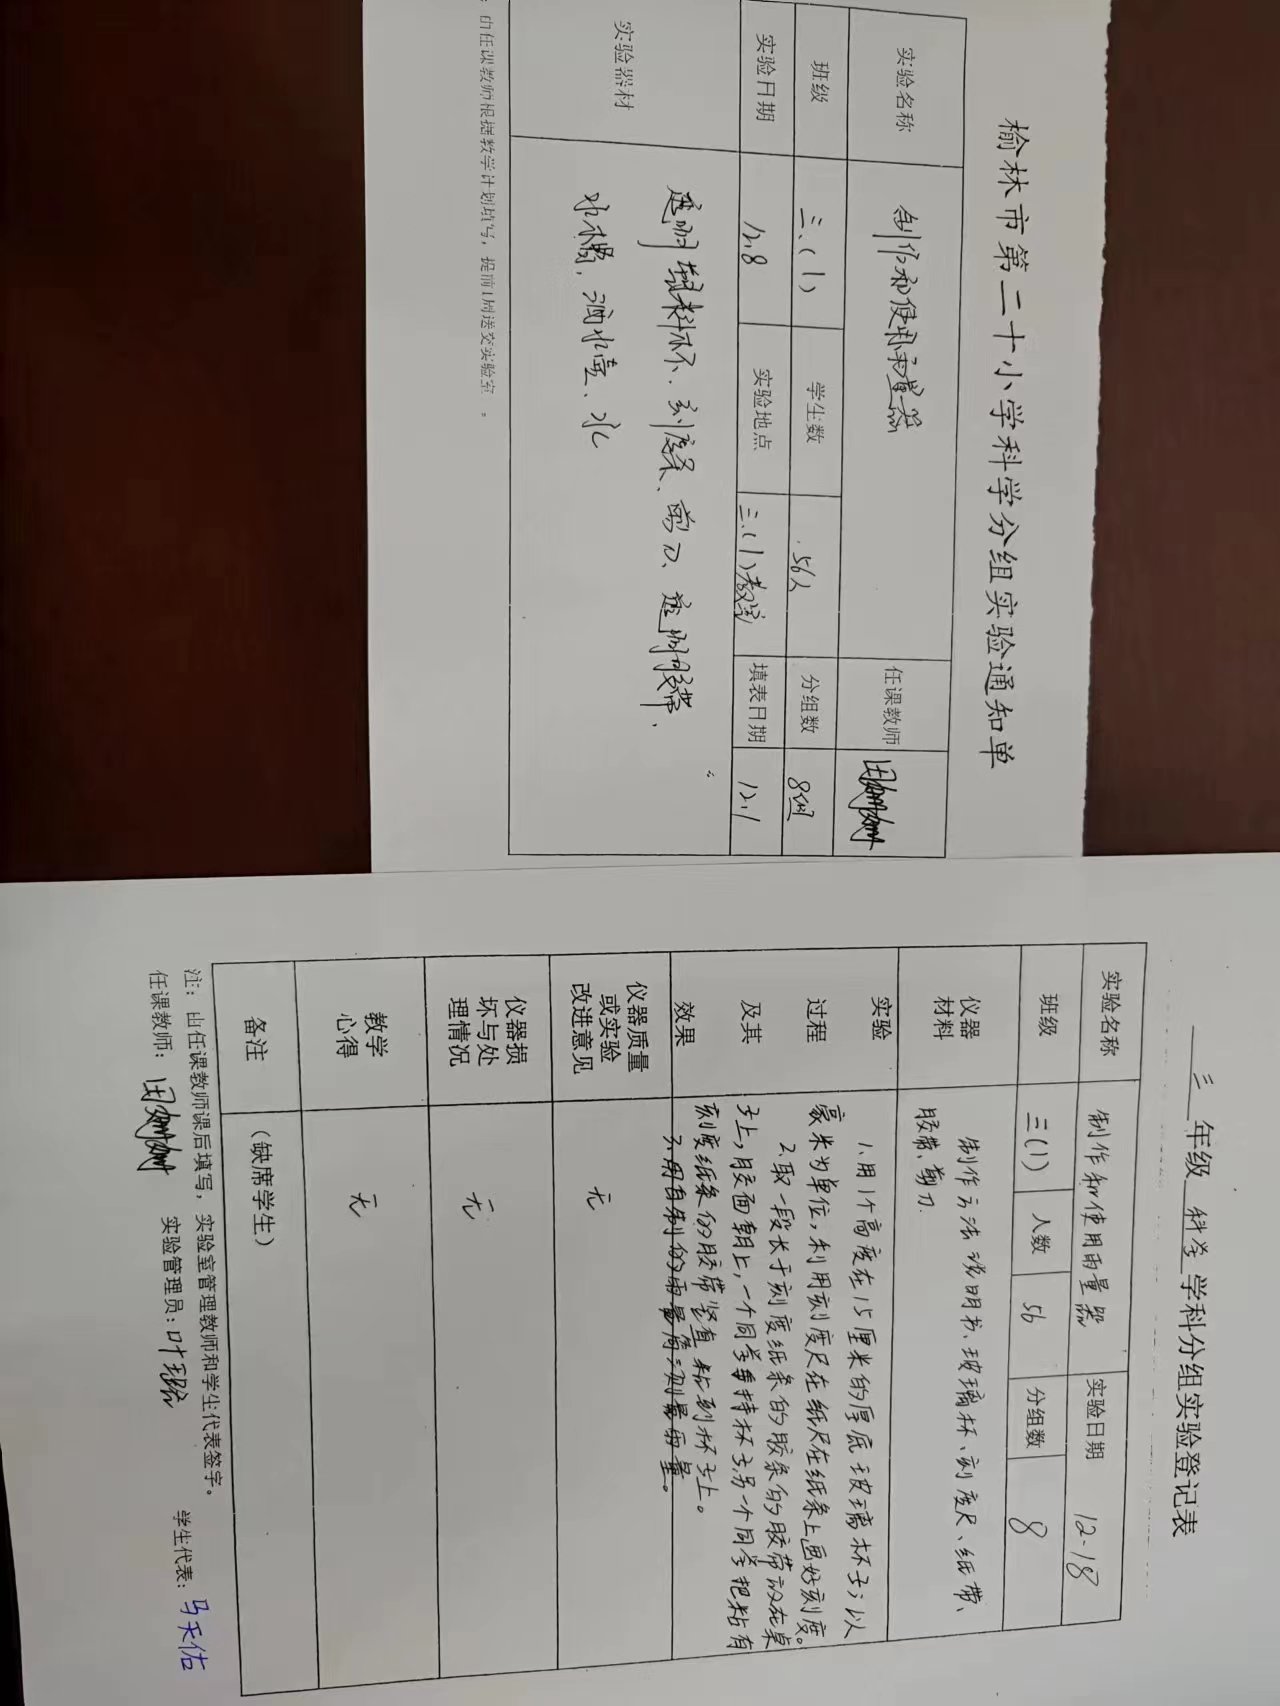 榆林市第二十小学科学分组实验通知单
实验名称 制作和使用雨量器 任课教师
班级 三.(1) 学生数 56人 分组数 8组
实验日期 12.8 实验地点 三.(1)教室 填表日期 12.1
实验器材 透明塑料杯、刻度条、剪刀、透明胶带、
水槽、洒水壶、水
:由任课教师根据教学计划填写,提前1周送交实验室。
三 年级 科学 学科分组实验登记表
实验名称 制作和使用雨量器 实验日期 12.18
班级 三(1) 人数 56 分组数 8
仪器材料 制作方法说明书、玻璃杯、刻度尺、纸带、
胶带、剪刀.
实验过程及其效果 1.用1个高度在15厘米的厚底玻璃杯子;以
豪米为单位,利用刻度尺在纸尺在纸条上画好刻度。
2.取一段长于刻度纸条的胶条的胶带放在桌
子上,胶面朝上,一个同学手持杯子,另一个同学把粘有
刻度纸条的胶带竖直粘到杯子上。
3.用自制的雨量筒测量雨量。
仪器质量或实验改进意见 无
仪器损坏与处理情况 无
教学心得 无
备注 (缺席学生)
注:由任课教师课后填写,实验室管理教师和学生代表签字。
任课教师: 实验管理员:叶 学生代表:马天佑